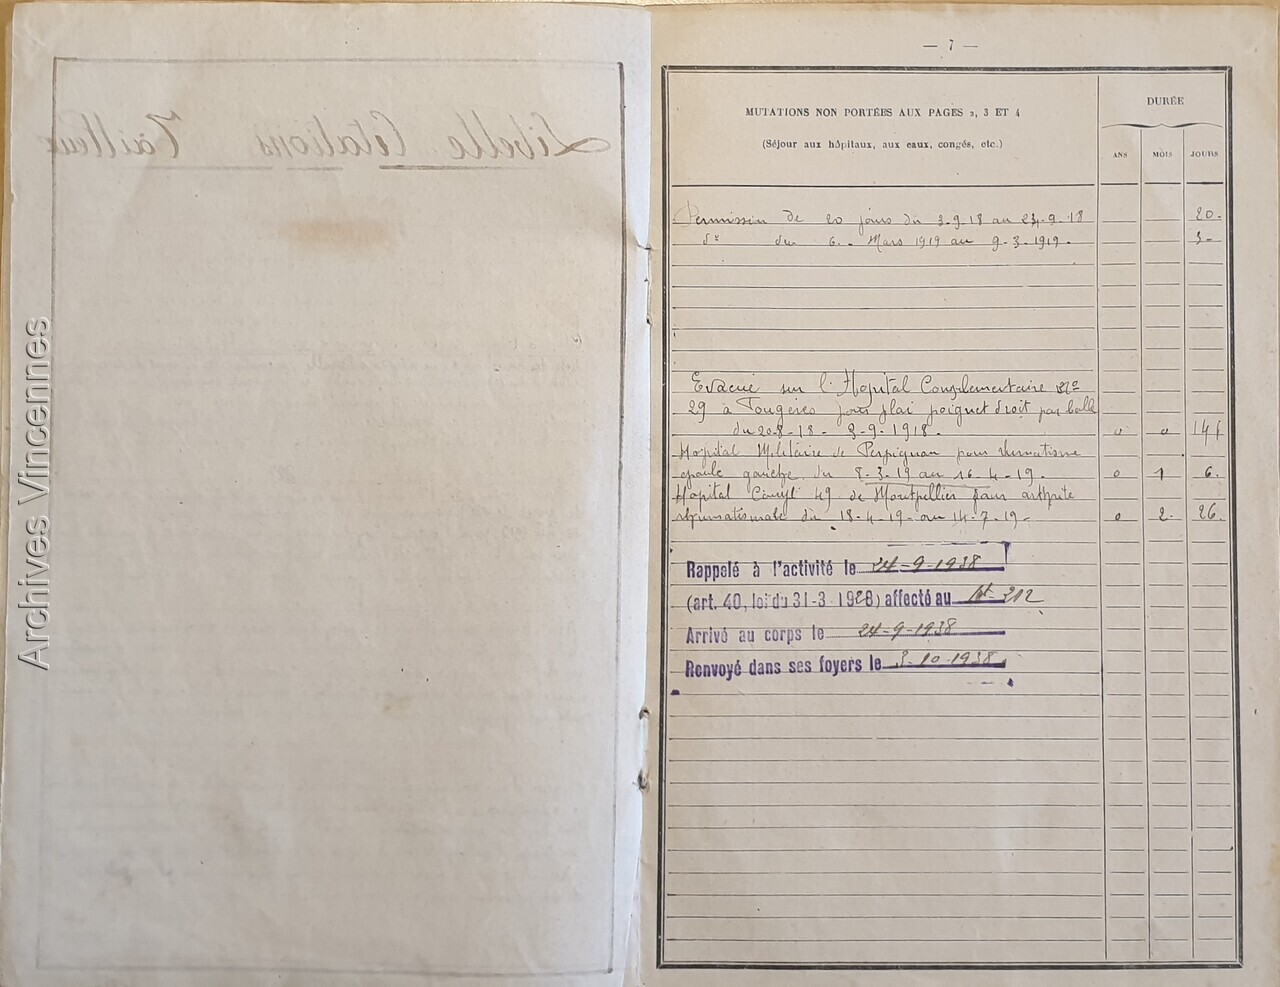 Libellé Citations Tailleur
Archives Vincennes
— 7 —
MUTATIONS NON PORTÉES AUX PAGES 2, 3 ET 4
(Séjour aux hôpitaux, aux eaux, congés, etc.)
DURÉE
ANS MOIS JOURS
Permission de 20 jours du 3-9-18 au 24-9-18 20.
du 6. Mars 1919 au 9-3-1919. 3-
Evacué sur l'Hopital Complementaire Nº
29 à Fougères pour plai poignet droit par balle
du 20-8-18- 3-9-1918. 0 0 14
Hopital Militaire de Perpignan pour rhumatisme
épaule gauche du 8-3-19 au 16-4-19. 0 1 6.
Hopital Compl 49 de Montpellier pour arthrite
rhumatismale du 18-4-19 au 14-7-19- 0 2. 26.
Rappelé à l'activité le 24-9-1938
(art. 40, loi du 31-3-1928) affecté au 212
Arrivé au corps le 24-9-1938
Renvoyé dans ses foyers le 10-1938.